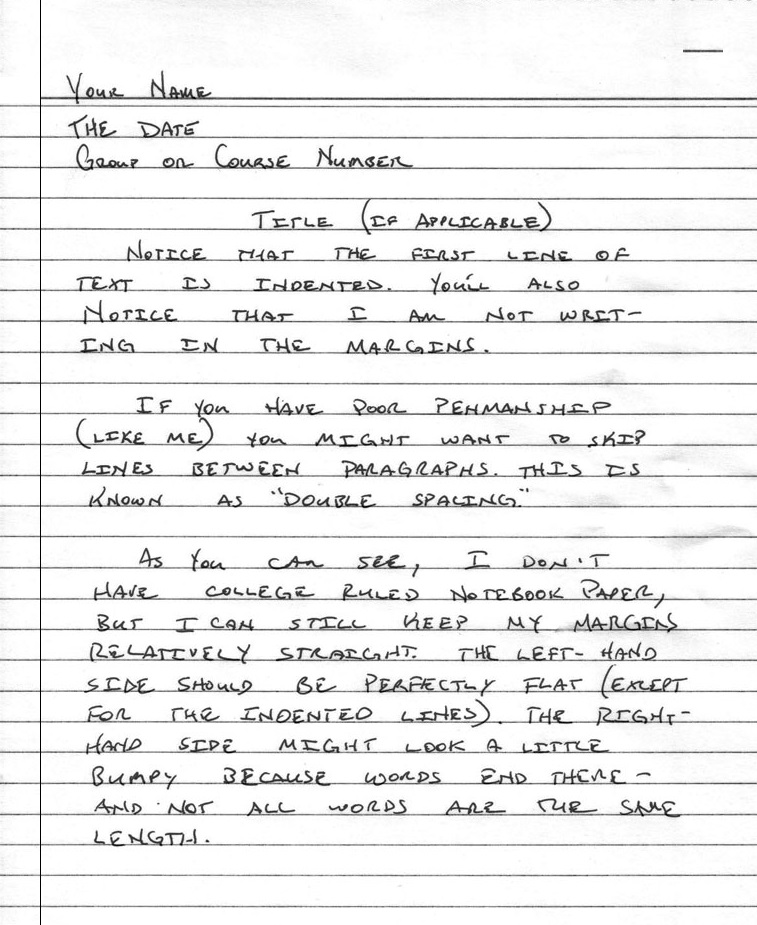 Your Name
The Date
Group or Course Number
Title (if applicable)
Notice that the first line of
text is indented. You'll also
notice that I am not writ-
ing in the margins.
If you have poor penmanship
(like me) you might want to skip
lines between paragraphs. This is
known as "double spacing."
As you can see, I don't
have college ruled notebook paper,
but I can still keep my margins
relatively straight. The left-hand
side should be perfectly flat (except
for the indented lines). The right-
hand side might look a little
bumpy because words end there-
and not all words are the same
length.